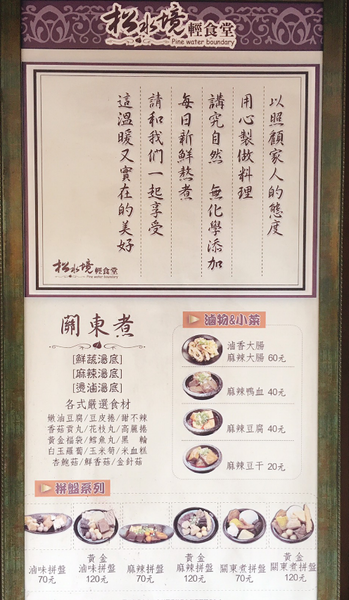 松水境輕食堂
Pine water boundary
以照顧家人的態度
用心製做料理
講究自然 無化學添加
每日新鮮熬煮
請和我們一起享受
這溫暖又實在的美好
松水境輕食堂
Pine water boundary
關東煮
[鮮蔬湯底]
[麻辣湯底]
[燙滷湯底]
各式嚴選食材
嫩油豆腐/豆皮捲/甜不辣
香菇貢丸/花枝丸/高麗捲
黃金福袋/鱈魚丸/黑輪
白玉蘿蔔/玉米筍/米血糕
杏鮑菇/鮮香菇/金針菇
滷物&小菜
滷香大腸
麻辣大腸 60元
麻辣鴨血 40元
麻辣豆腐 40元
麻辣豆干 20元
拼盤系列
滷味拼盤
70元
黃金
滷味拼盤
120元
麻辣拼盤
70元
黃金
麻辣拼盤
120元
關東煮拼盤
70元
黃金
關東煮拼盤
120元